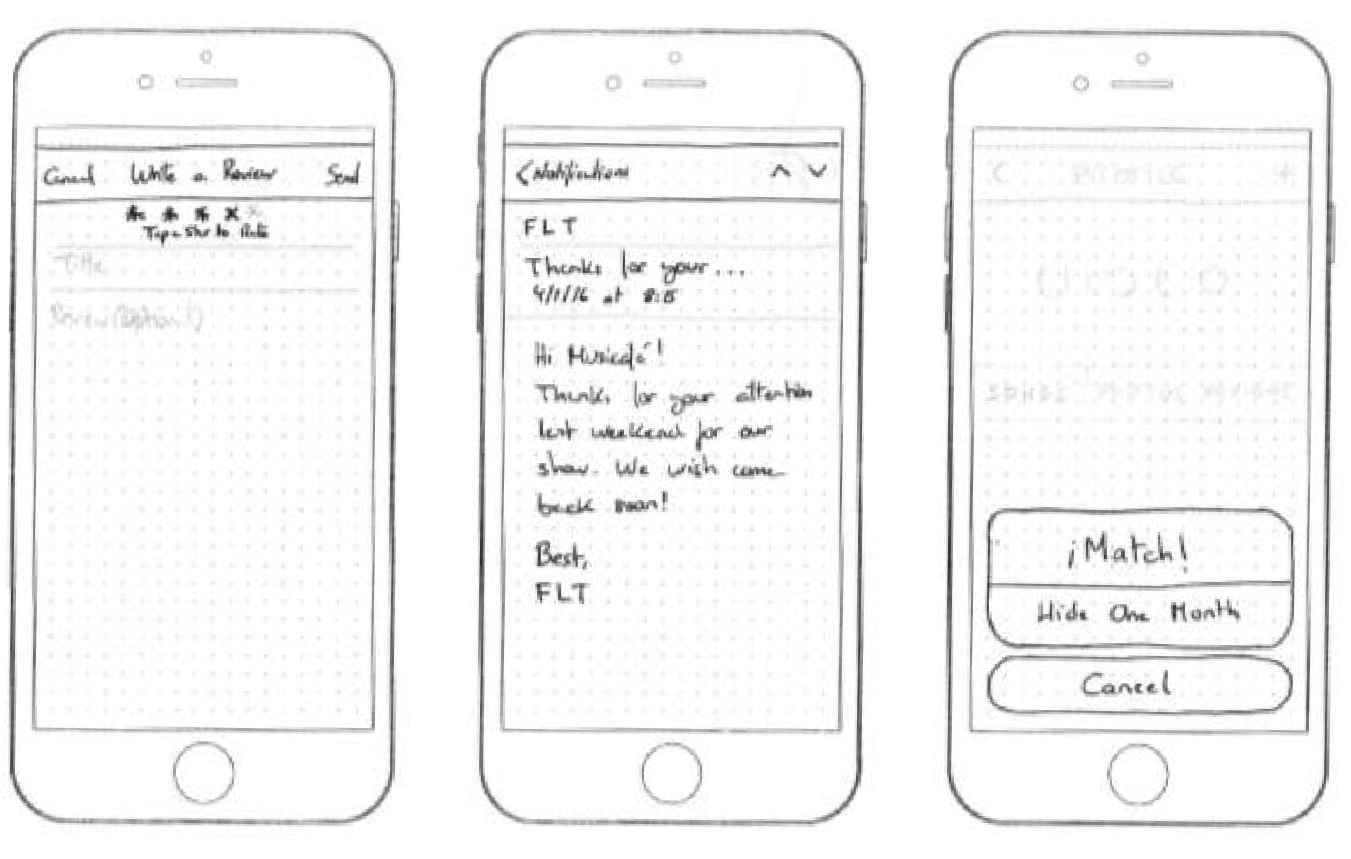 Cancel Write a Review Send
Tap a Star to Rate
Title
Review (Optional)
< Notifications
FLT
Thanks for your...
4/1/16 at 8:15
Hi
Thanks for your attention
last weekend for our
show. We wish come
back soon!
Best,
FLT
¡Match!
Hide One Month
Cancel